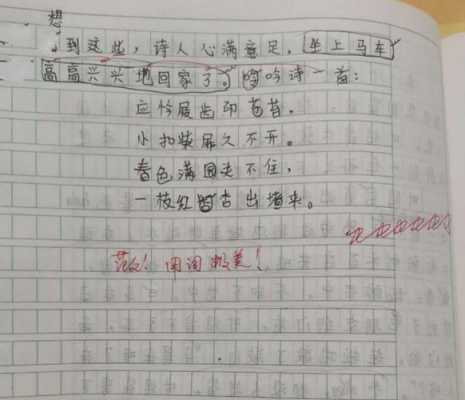 想
到这些，诗人心满意足，坐上马车
高高兴兴地回家了。吟诗一首：
应怜屐齿印苍苔，
小扣柴扉久不开。
春色满园关不住，
一枝红杏出墙来。
范文！用词极美！